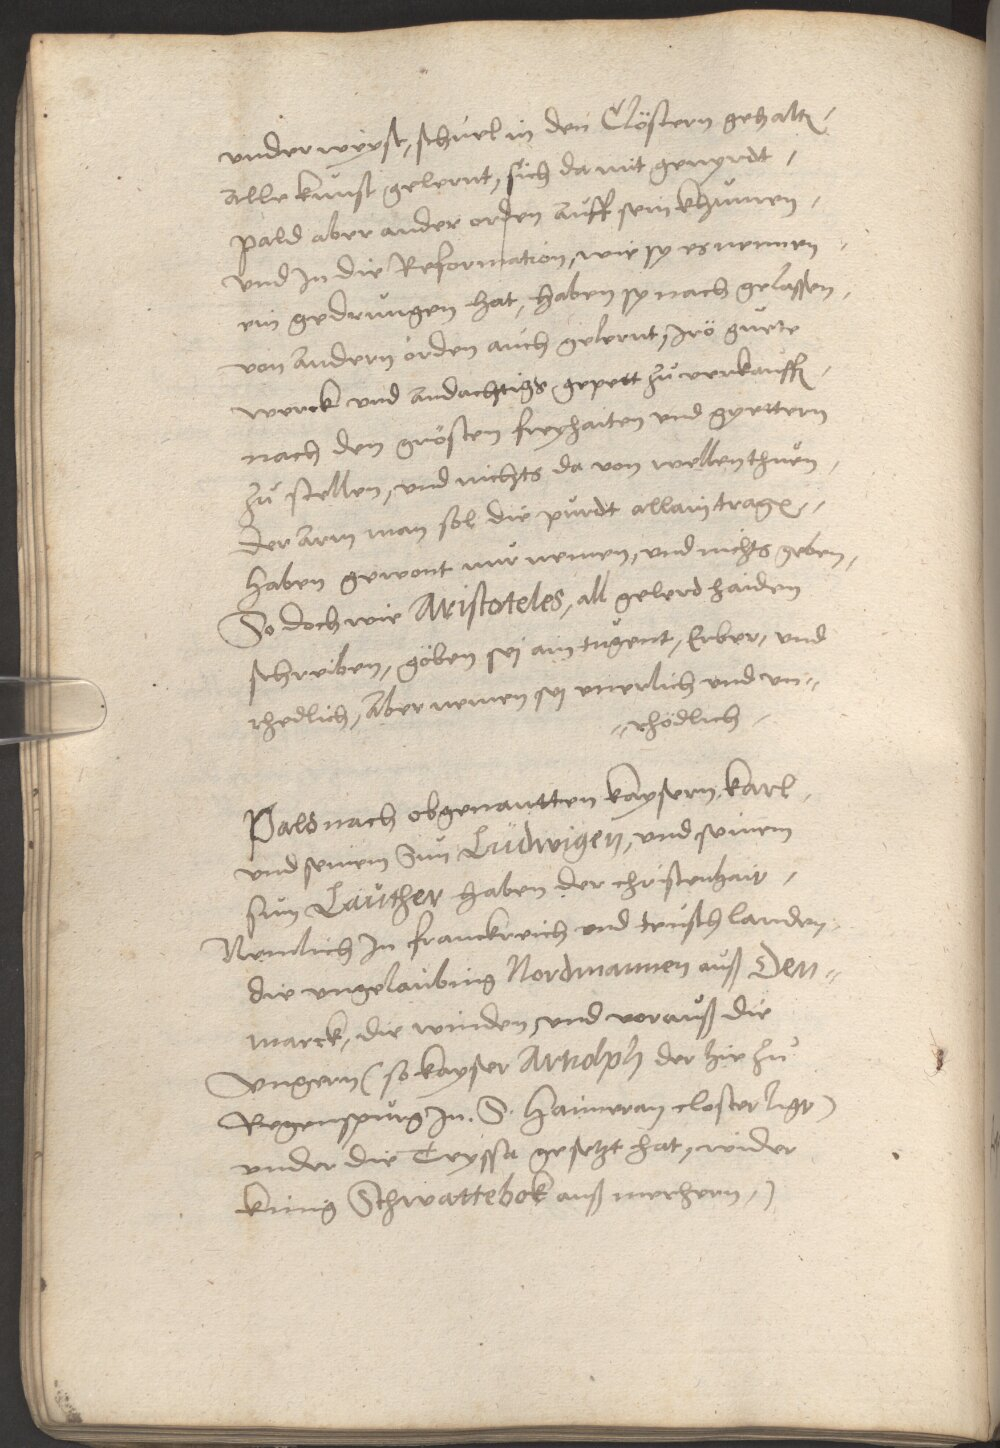 vnderweyst, schuel in den Clöstern gehaltn,
alle kunst gelernt, sich da mit genyrdt,
pald aber ander orden auff sein khumen,
vnd In die Reformation, wie sy es nennen
ein gedrungen hat, haben sy nach gelassen,
von andern orden auch gelernt, Irö guete
werck vnd andachtigs gepett zu verkauffn,
nach den grösten freyhaiten vnd guettern
zu stellen, vnd nichts da von wellen thuen,
der arm man sol die purdt allain tragn,,
haben gewont nur nemen, vnd nichts geben,
So doch wie Aristoteles, all gelerd haiden
schreiben, göben sei ain tugent, Erber, vnd
rhedlich, aber nemen sei vnerlich vnd vn,,
,,rhödlich,
Pald nach obgenantten kaysern, karl,
vnd seinem Sun Ludwigen, vnd seinem
sun Lauther haben der christenhait,
Nemlich In franckreich vnd teusch landen,
die vngelaubing Nordmannen auß Den,,
marck, die winden, vnd vorauß die
Vngern (so kayser Arnolph der hie zu
Regenspurg In. S. Haimeran closter ligt)
vnder die Teyssa gesetzt hat, wider
kunig Schwattebok auß merhern,)